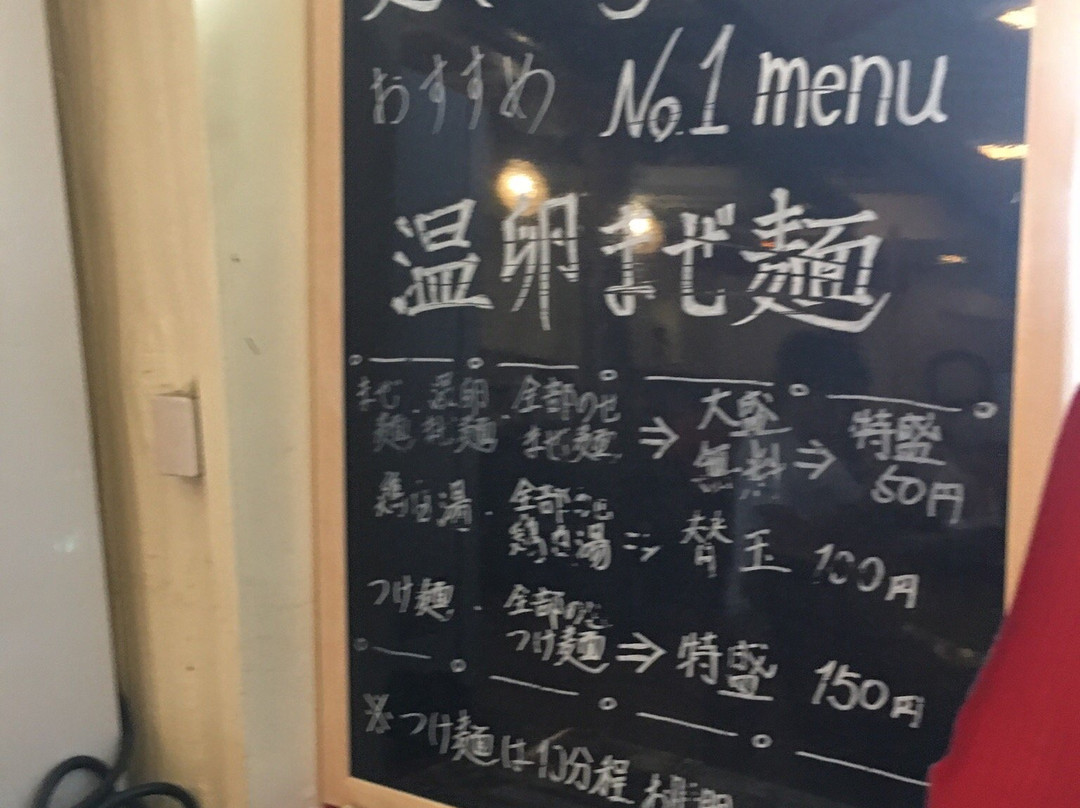 おすすめ No.1 menu
温卵まぜ麺
まぜ麺・温卵まぜ麺 全部のせまぜ麺 ⇒ 大盛無料 ⇒ 特盛50円
鶏白湯・全部のせ鶏白湯 ⇒ 替玉 100円
つけ麺・全部のせつけ麺 ⇒ 特盛 150円
※つけ麺は10分程